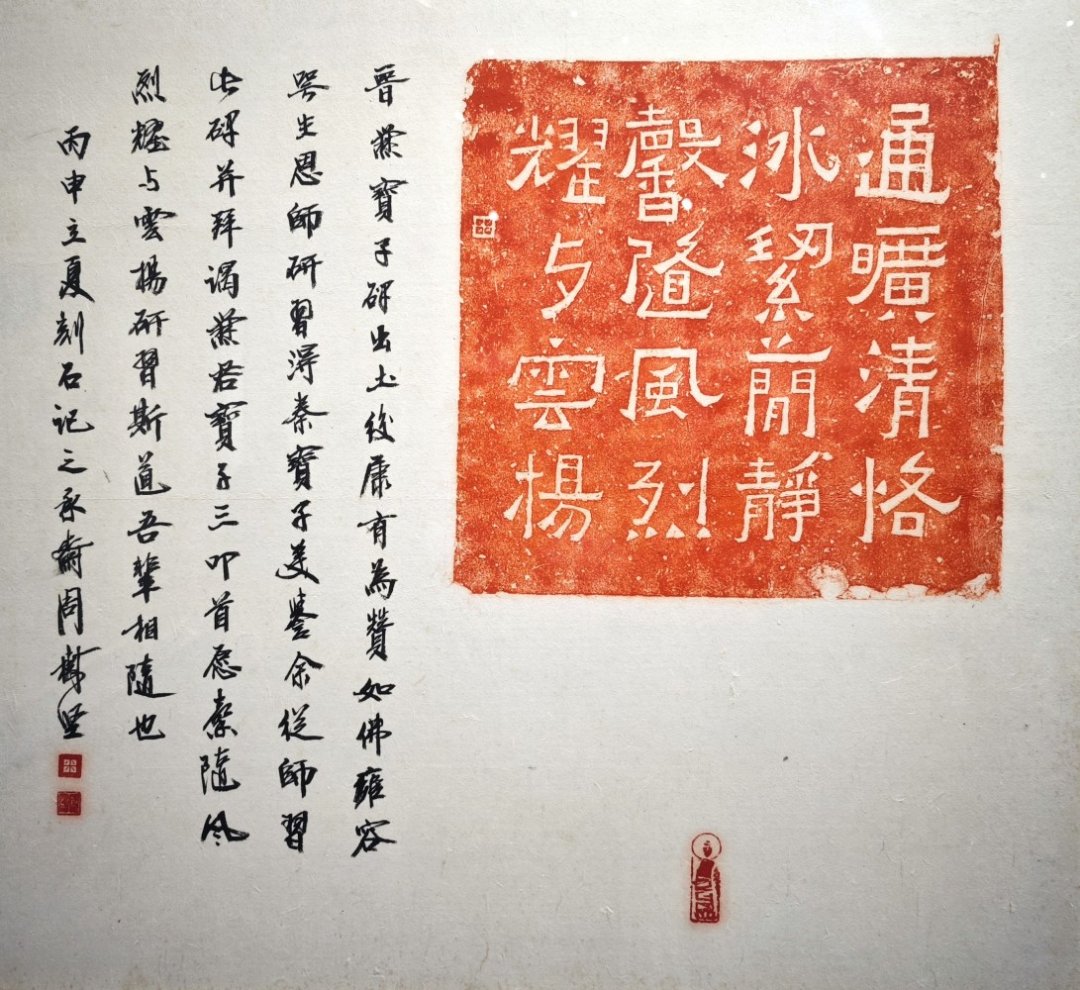 通曠清恪
冰絜蕳靜
馨隨風烈
耀与雲揚
晉爨寶子碑出土後康有為贊如佛雍容
咢生恩師研習得秦寶子美譽余從師習
此碑并拜謁爨君寶子三叩首愿馨隨风
烈耀与雲揚研習斯道吾輩相隨也
丙申立夏刻石记之承齋周樹坚